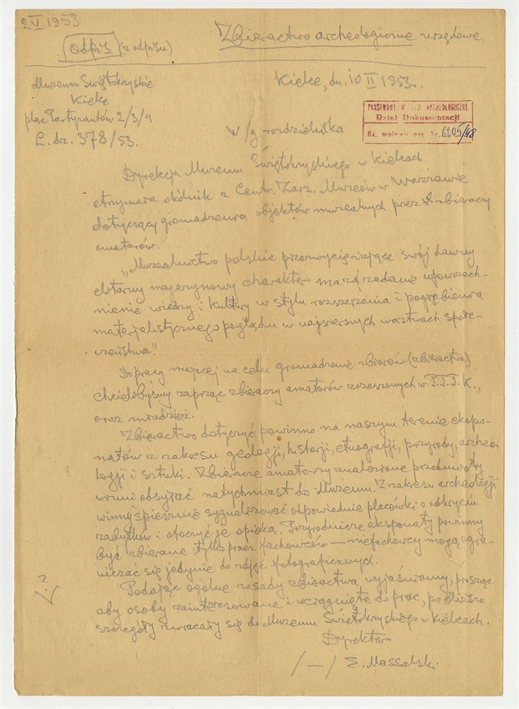 2 VI 1953
odpis (z odpisu)
Zbieractwo archeologiczne urzędowe.
Muzeum Świętokrzyskie
Kielce
plac Partyzantów 2/3/4
L. dz. 378/53.
Kielce, dn. 10 II 1953.
PAŃSTWOWE ARCHEOLOGICZNE
Dział Dokumentacji
Nr. 6205/48
W/g rozdzielnika
Dyrekcja Muzeum Świętokrzyskiego w Kielcach
otrzymała okólnik z Centr. Zarz. Muzeów w Warszawie
dotyczący gromadzenia objektów muzealnych przez zbieraczy
amatorów.
„Muzealnictwo polskie przezwyciężające swój dawny
elitarny magazynowy charakter ma zadanie upowszech-
nienie wiedzy i kultury w stylu rozszerzenia i pogłębienia
materjalistycznego poglądu w najszerszych warstwach społe-
czeństwa".
Do pracy mającej na celu gromadzenie zbiorów (zbieractwa)
chcielibyśmy zaprząc zbieraczy amatorów zrzeszonych w P.T.T.K.,
oraz młodzież.
Zbieractwo dotyczyć powinno na naszym terenie ekspo-
natów z zakresu geologji, historji, etnografji, przyrody, archeo-
logji i sztuki. Zbieracze amatorzy znalezione przedmioty
winni odsyłać natychmiast do Muzeum. Z zakresu archeologji
winni śpiesznie sygnalizować odpowiednie placówki o odkryciu
zabytków i otoczyć je opieką. Przyrodnicze eksponaty powinny
być zbierane tylko przez fachowców — niefachowcy mogą ogra-
niczać się jedynie do zdjęć fotograficznych.
Podając ogólne zasady zbieractwa wyjaśniamy, prosząc
aby osoby zainteresowane i wciągnięte do prac, po bliższe
szczegóły zwracały się do Muzeum Świętokrzyskiego w Kielcach.
Dyrektor
/—/ E. Massalski